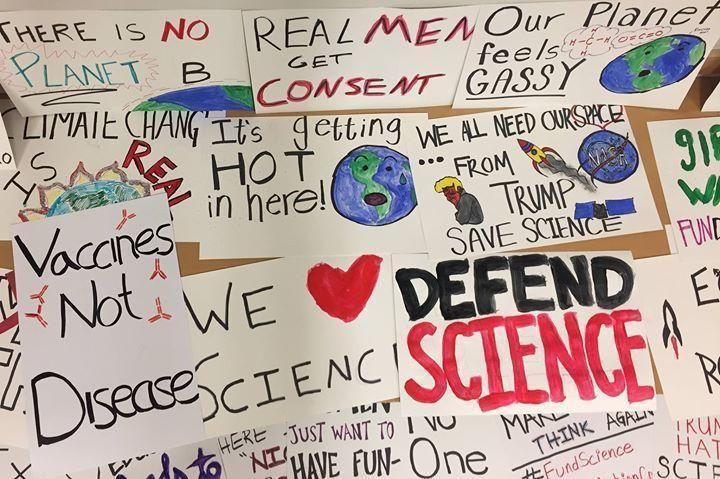 THERE IS NO
PLANET B
REAL MEN
GET
CONSENT
Our Planet
feels
GASSY
CLIMATE CHANG
IS
REAL
It's getting
HOT
in here!
WE ALL NEED OUR SPACE
... FROM
TRUMP
NASA
SAVE SCIENCE
Vaccines
Not
Disease
WE
SCIENC
DEFEND
SCIENCE
HERE
JUST WANT TO
HAVE FUN-
No
One
MAKE
THINK AGAIN
#FundScience
TRUM
HAT
SCI